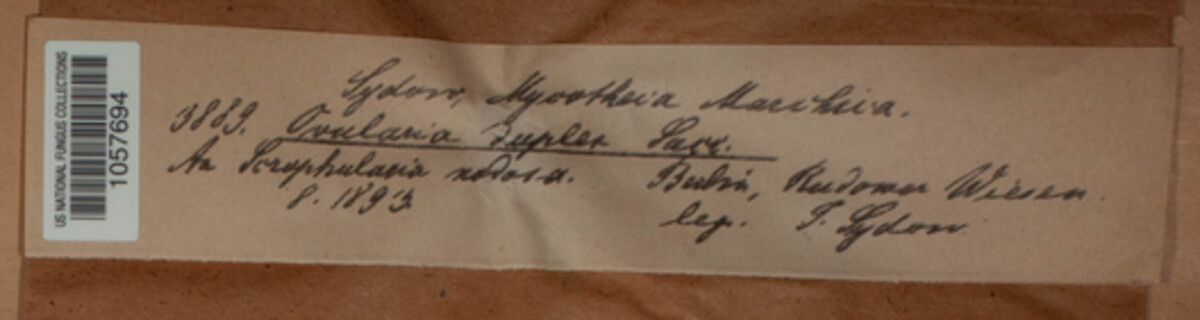 US NATIONAL FUNGUS COLLECTIONS
1057694
Sydow, Mycotheca Marchica.
3889. Ovularia duplex Sacc.
An Scrophularia nodosa. Berlin, Rudower Wiesen.
8. 1893 leg. P. Sydow